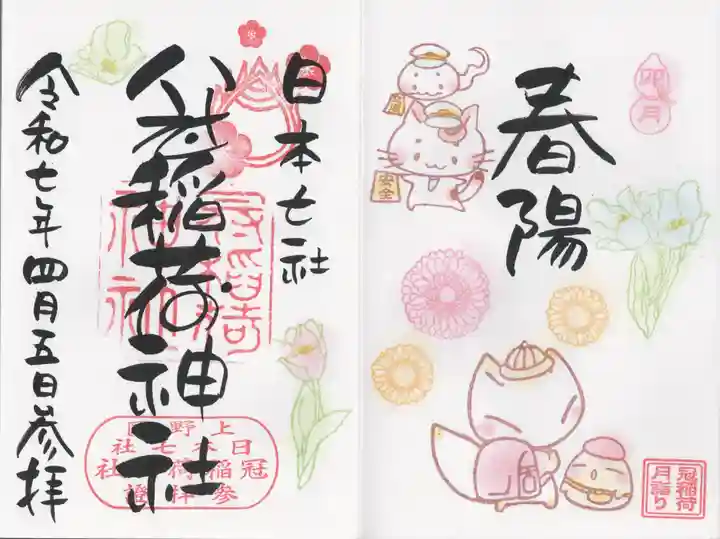 卯月
春陽
安全
冠稲荷
月詣り
日本七社
冠稲荷神社
上野国
日本七社
冠稲荷神社
参拝證
令和七年四月五日参拝